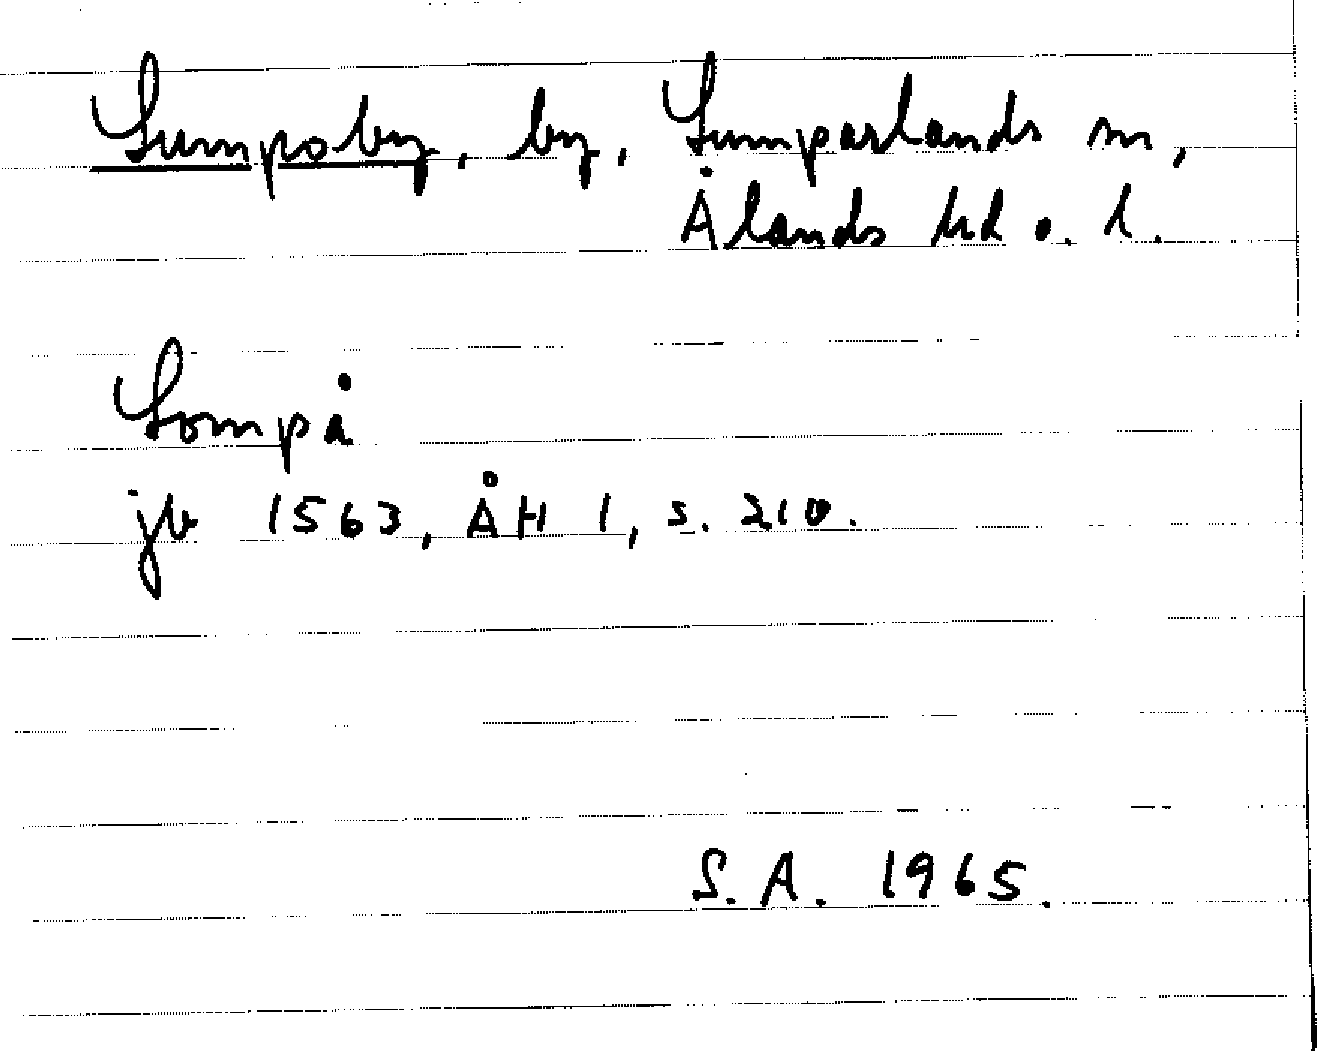 Sumpoby, by, Sumparlands sn,
Ålands hd o. l.
Sompå
jb 1563, ÅH 1, s. 210.
S.A. 1965.